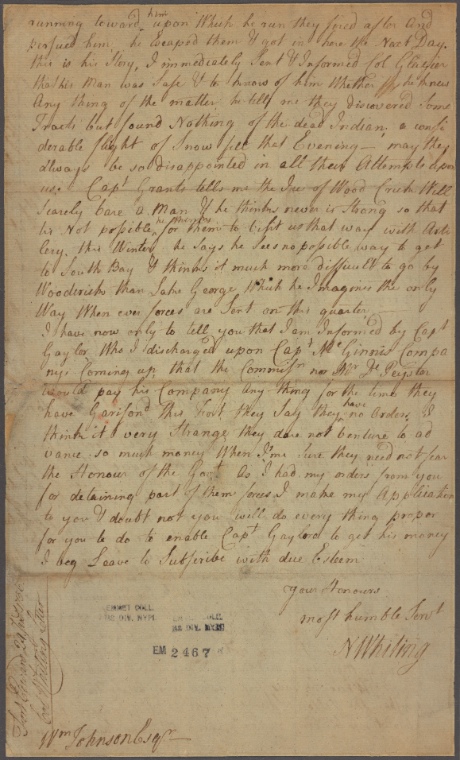 running toward him upon Which he run they fired after And
persued him, he Escaped them & got in here the Next Day.
this is his Story, I immediately Sent & Informed Col Glasier
that his Man was Safe & to know of him Whether he knew
Any thing of the matter, he tells me they discovered Some
Tracks but found Nothing of the dead Indian, a consi
derable flight of Snow fell that Evening — may they
always be so disappointed in all their Attempts upon
us. Capt Grants tells me the Ice of Wood Creek Will
Scarcely bare a Man & he thinks never is Strong so that
his Not possible he Means for them to Visit us that way with Arti
lery, this Winter, he Says he Sees no possible way to get
to South Bay & thinks it much more difficult to go by
Woodcrick than Lake George Which he Imagines the only
Way When ever forces are Sent on this quarter —
I have now only to tell you that I am Informed by Capt
Gaylor Who I discharged upon Capt McGinnis Compa
nys Coming up that the Commissr no Mr De Peyster
would pay his Company Any thing for the time they
have Garison'd this Fort they Say they have no Orders, I
think it very Strange they dare not venture to ad
vance so much money When I'me Sure they need not fear
the Honour of the Govt. As I had my orders from you
for detaining part of them forces I make my Application
to you & doubt not you will do every thing proper
for you to do to enable Capt Gaylord to get his money
I beg Leave to Subscribe with due Esteem
your Honours
most humble Servt
N Whiting
EMMET COLL.
MS. DIV. NYPL
EM 2467
Wm Johnson Esqr —